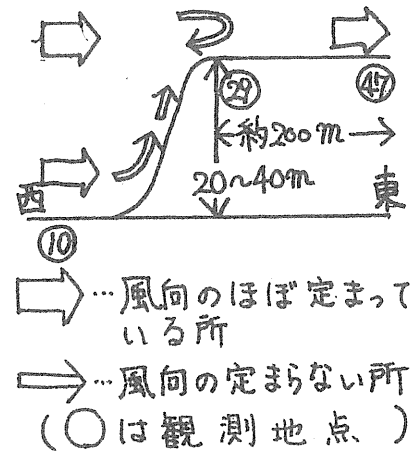 ㉙
㊼
約200m
20~40m
西
東
⑩
…風向のほぼ定まって
いる所
…風向の定まらない所
(○は観測地点)